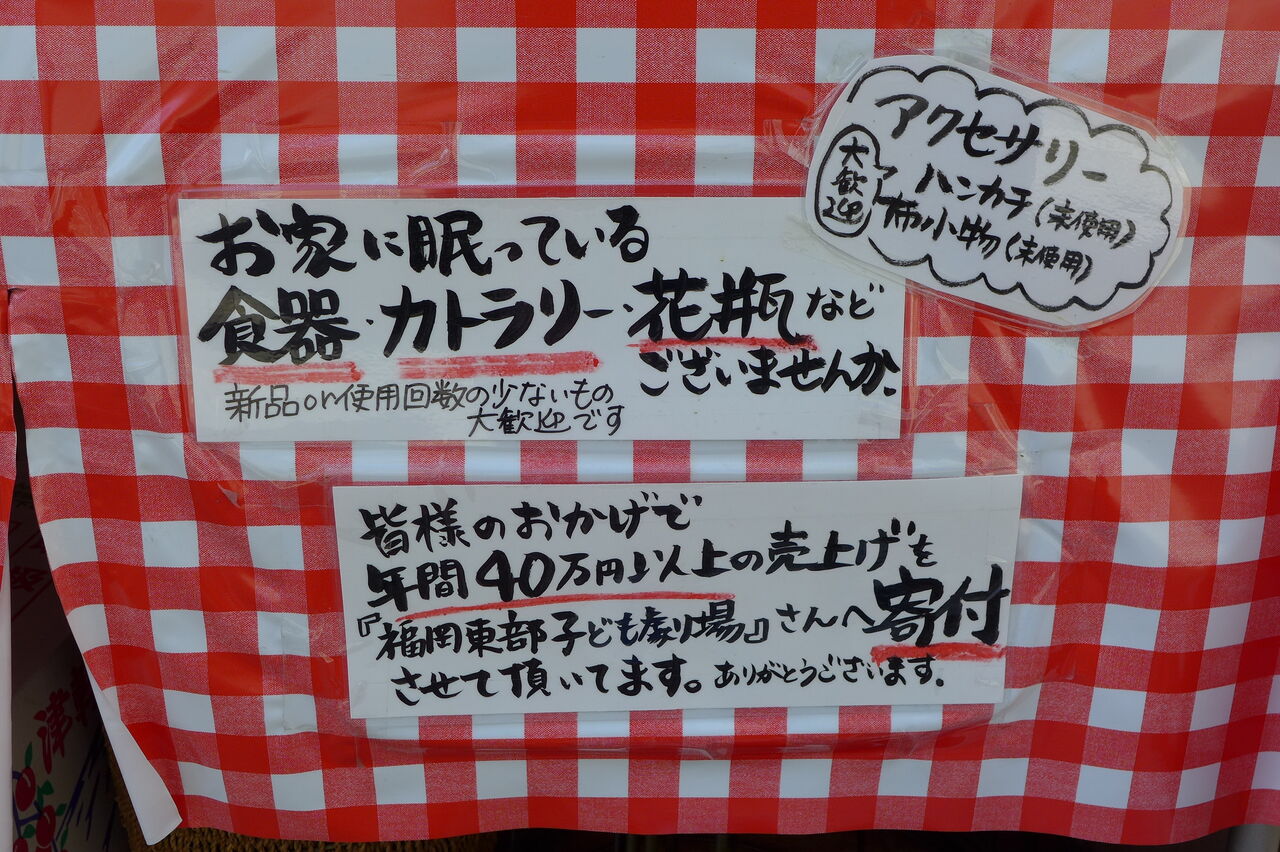 お家に眠っている
食器・カトラリー・花瓶など
ございませんか。
新品or使用回数の少ないもの
大歓迎です
アクセサリー
ハンカチ(未使用)
布小物(未使用)
大歓迎
皆様のおかげで
年間40万円以上の売上げを
『福岡東部子ども劇場』さんへ寄付
させて頂いてます。ありがとうございます。